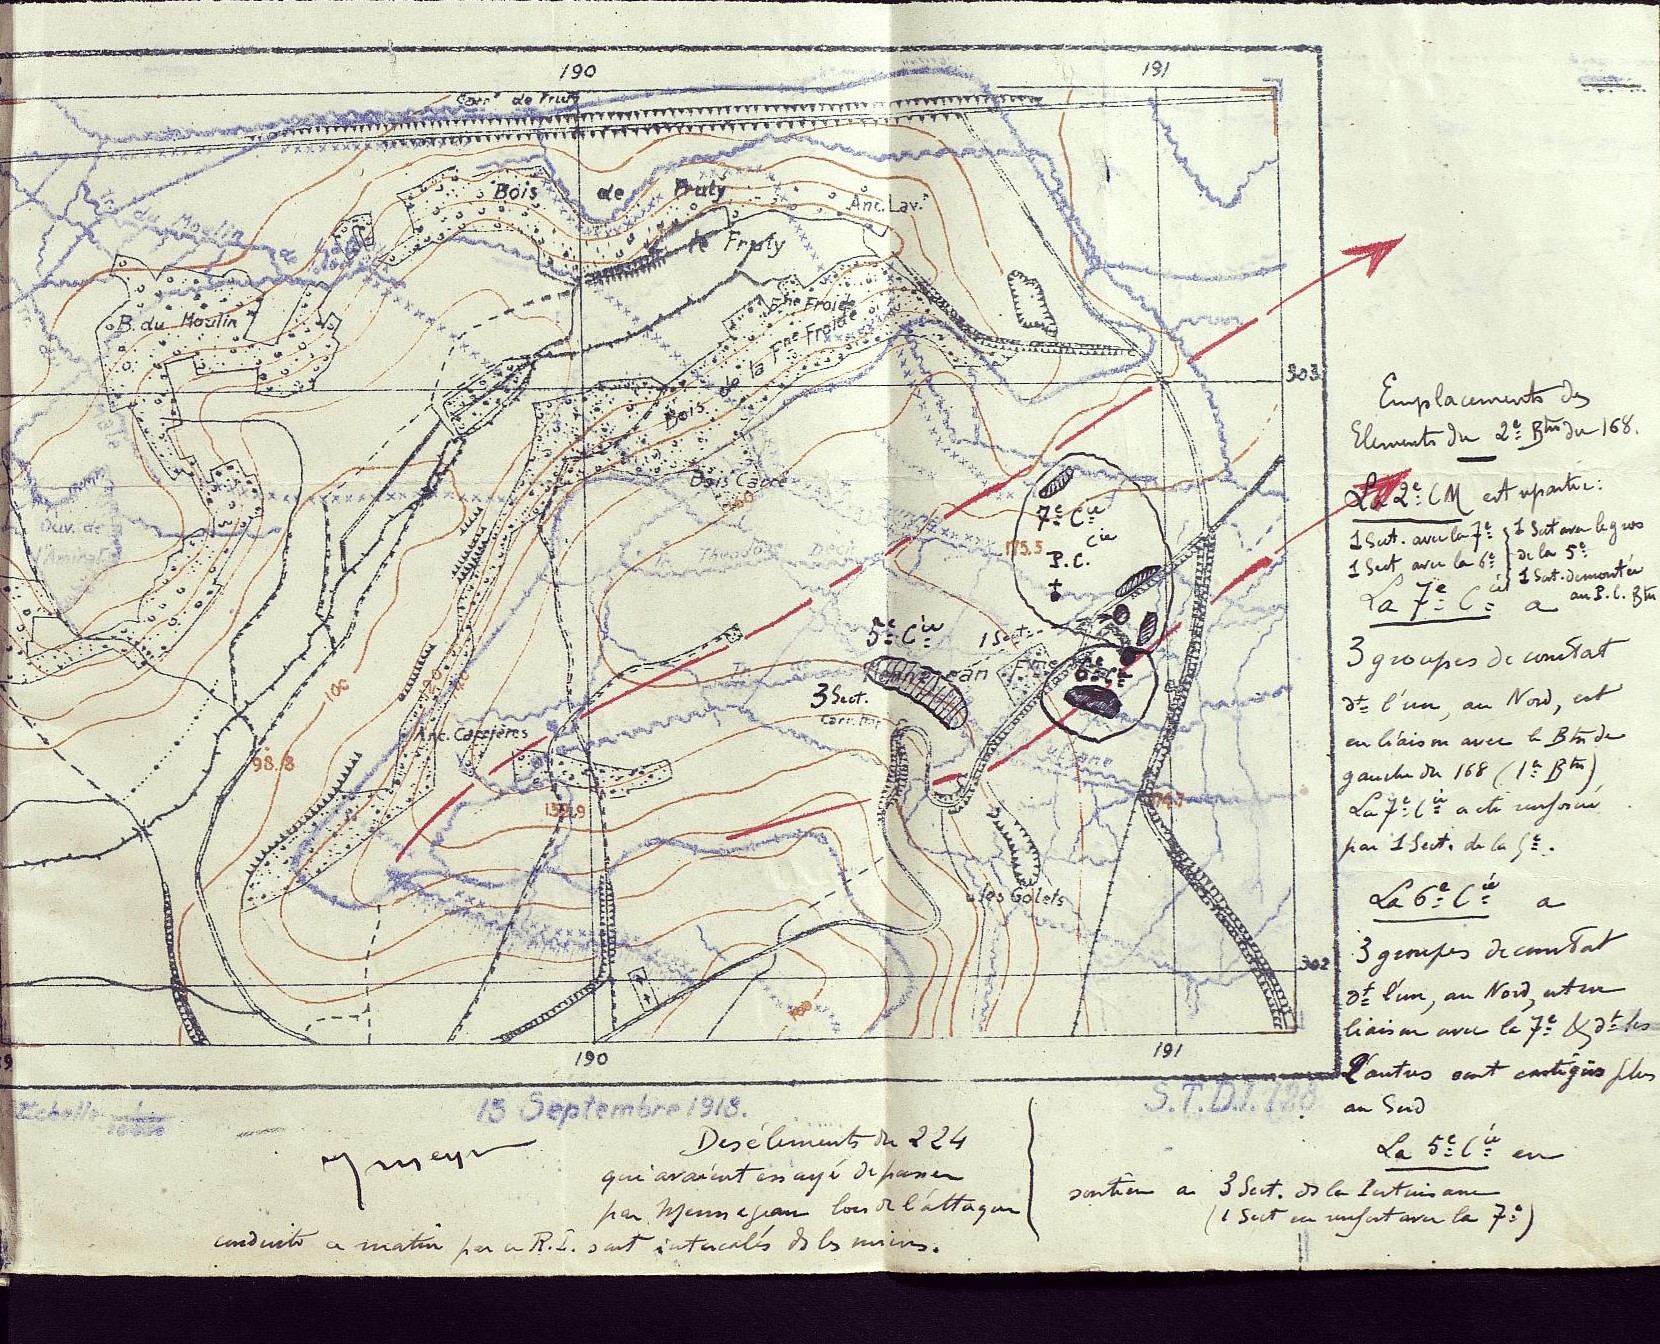 190
191
Bois de Fruty
Anc. Lav.
le Fruty
du Moulin
B. du Moulin
Fne Froide
Bois de la Fne Froide
303
Bois Carré
100
7e Cie
Cie
175.5
P.C.
Ouv. de
5e Cie
1 Sect.
6e Cie
3 Sect.
100
Anc. Carrières
98.8
139.9
les Golets
302
190
191
Echelle
15 Septembre 1918.
S.T.D.I. 128
Emplacements des
Elements du 2e Btn du 168.
La 2e CM est répartie:
1 Sect. avec la 7e
1 Sect avec la 6e
1 Sect avec le gros
de la 5e
1 Sect. démontée
au P.C. Btn
La 7e Cie a
3 groupes de combat
dt l'un, au Nord, est
en liaison avec le Btn de
gauche du 168 (1er Btn)
La 7e Cie a été renforcée
par 1 Sect. de la 5e.
La 6e Cie a
3 groupes de combat
dt l'un, au Nord, est en
liaison avec la 7e & dt les
2 autres sont contigus plus
au Sud
La 5e Cie en
soutien a 3 Sect. ds la
(1 Sect en renfort avec la 7e)
Des élements du 224
qui avaient essayé de passer
par Mennejean lors de l'attaque
conduite ce matin par ce R.I. sont intercalés ds les miens.